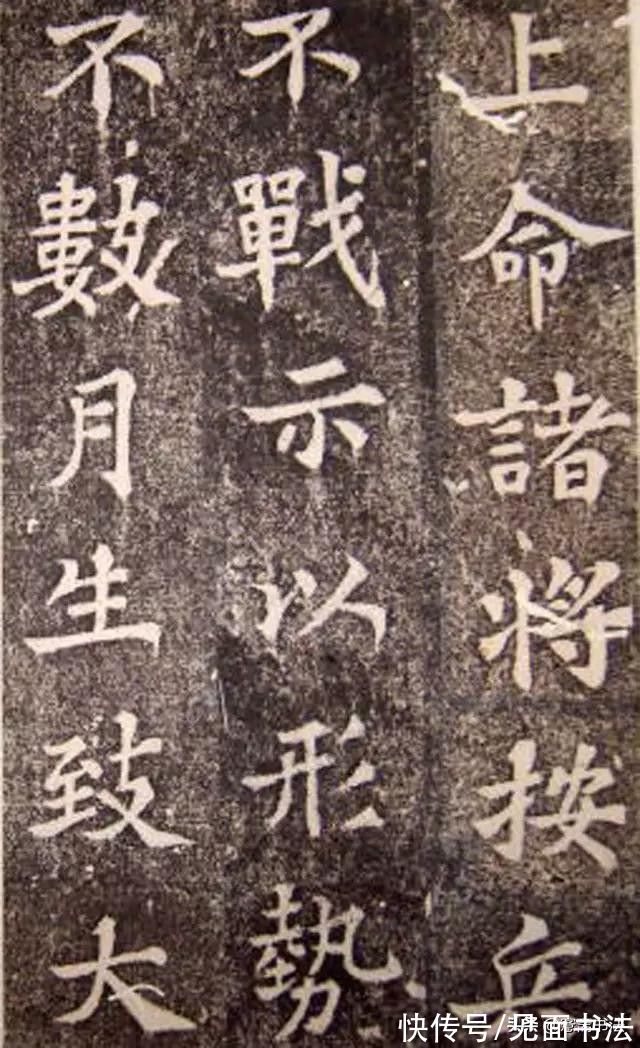 上命諸將按兵
不戰示以形勢
不數月生致大
快传号/见面书法